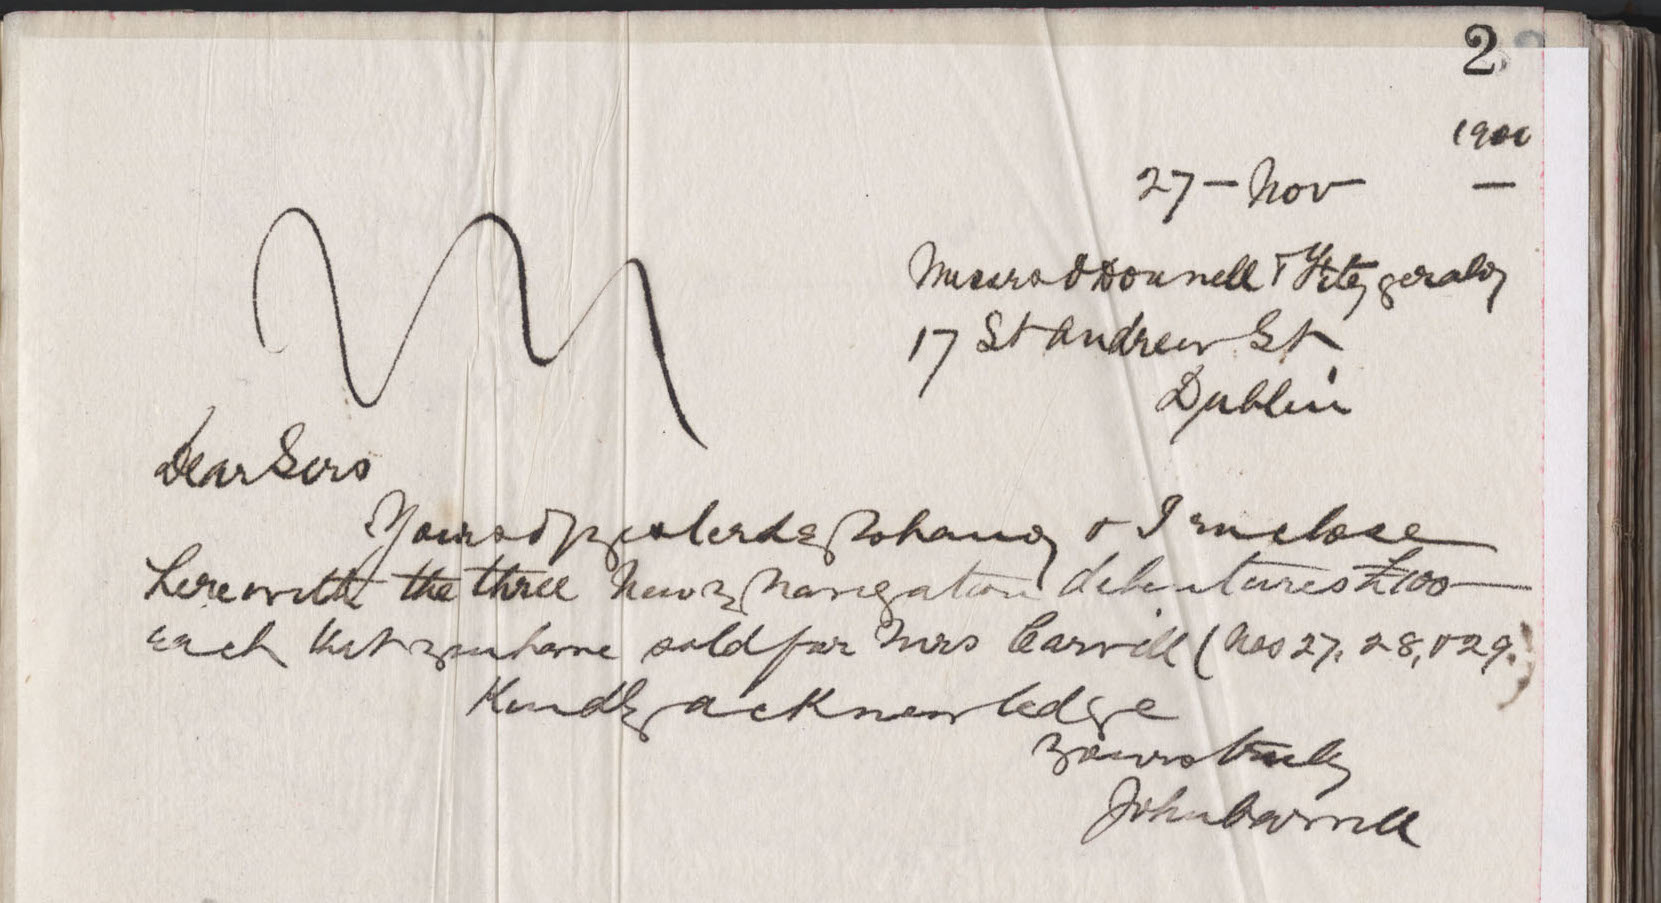 2
1900
27 - Nov -
Messrs O Donnell & Fitzgerald
17 St Andrew St
Dublin
Dear Sirs
Yours of yesterday to hand & I enclose
herewith the three Newry Navigation debentures £100
each that you have sold for Mrs Carvill (Nos 27, 28, & 29.)
Kindly acknowledge
Yours truly
John Carvill